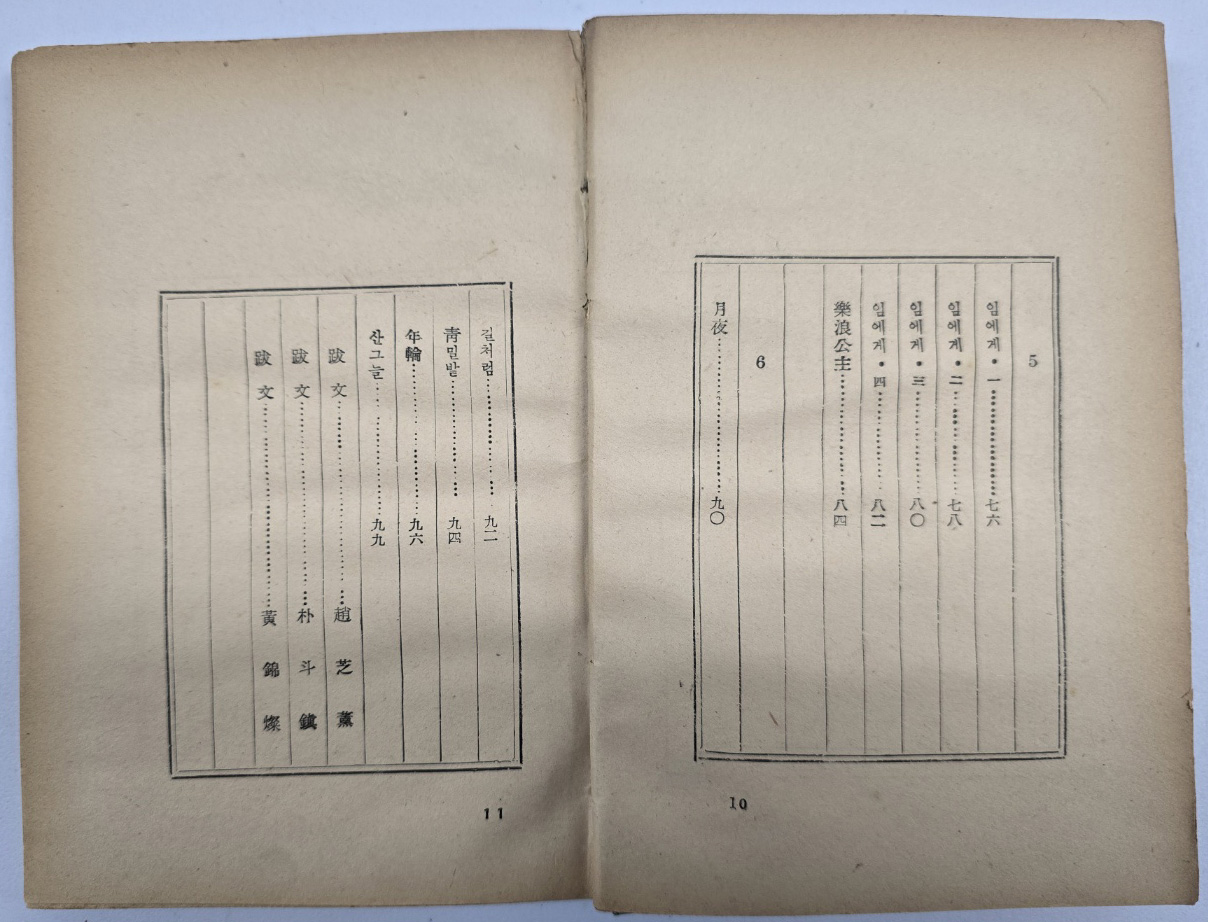 5
임에게・一…………………七六
임에게・二…………………七八
임에게・三…………………八〇
임에게・四…………………八二
樂浪公主…………………八四
6
月夜…………………九〇
10
길처럼…………………九二
靑밀밭…………………九四
年輪…………………九六
산그늘…………………九九
跋文…………………趙芝薰
跋文…………………朴斗鎭
跋文…………………黃錦燦
11